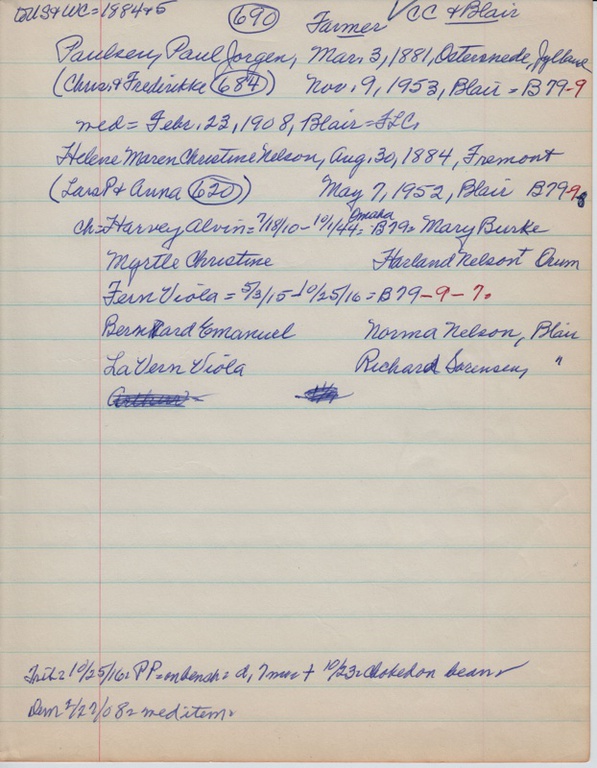 To US & WC = 1884 & 5 690 Farmer CC & Blair
Paulsen, Paul Jorgen, Mar. 3, 1881, Ostersnede, Jylland
(Chris. & Fredirikke 684) Nov. 9, 1953, Blair = B79-9
wed = Febr. 23, 1908, Blair = FLC.
Helene Maren Christine Nelson, Aug. 30, 1884, Fremont
(Lars P & Anna 620) May 7, 1952, Blair B79-98
ch = Harvey Alvin = 7/18/10 - 10/1/44 = Omaha B79 = Mary Burke
Myrtle Christine Harland Nelson + Orum
Fern Viola = 5/3/15 - 10/25/16 = B79-9-7.
Bernard Emanuel Norma Nelson, Blair
LaVern Viola Richard Sorensen, "
Trib = 10/25/16 = PP = = d, 7 mos + 10/23 = choked on bean
Dem 2/27/08 = wed item